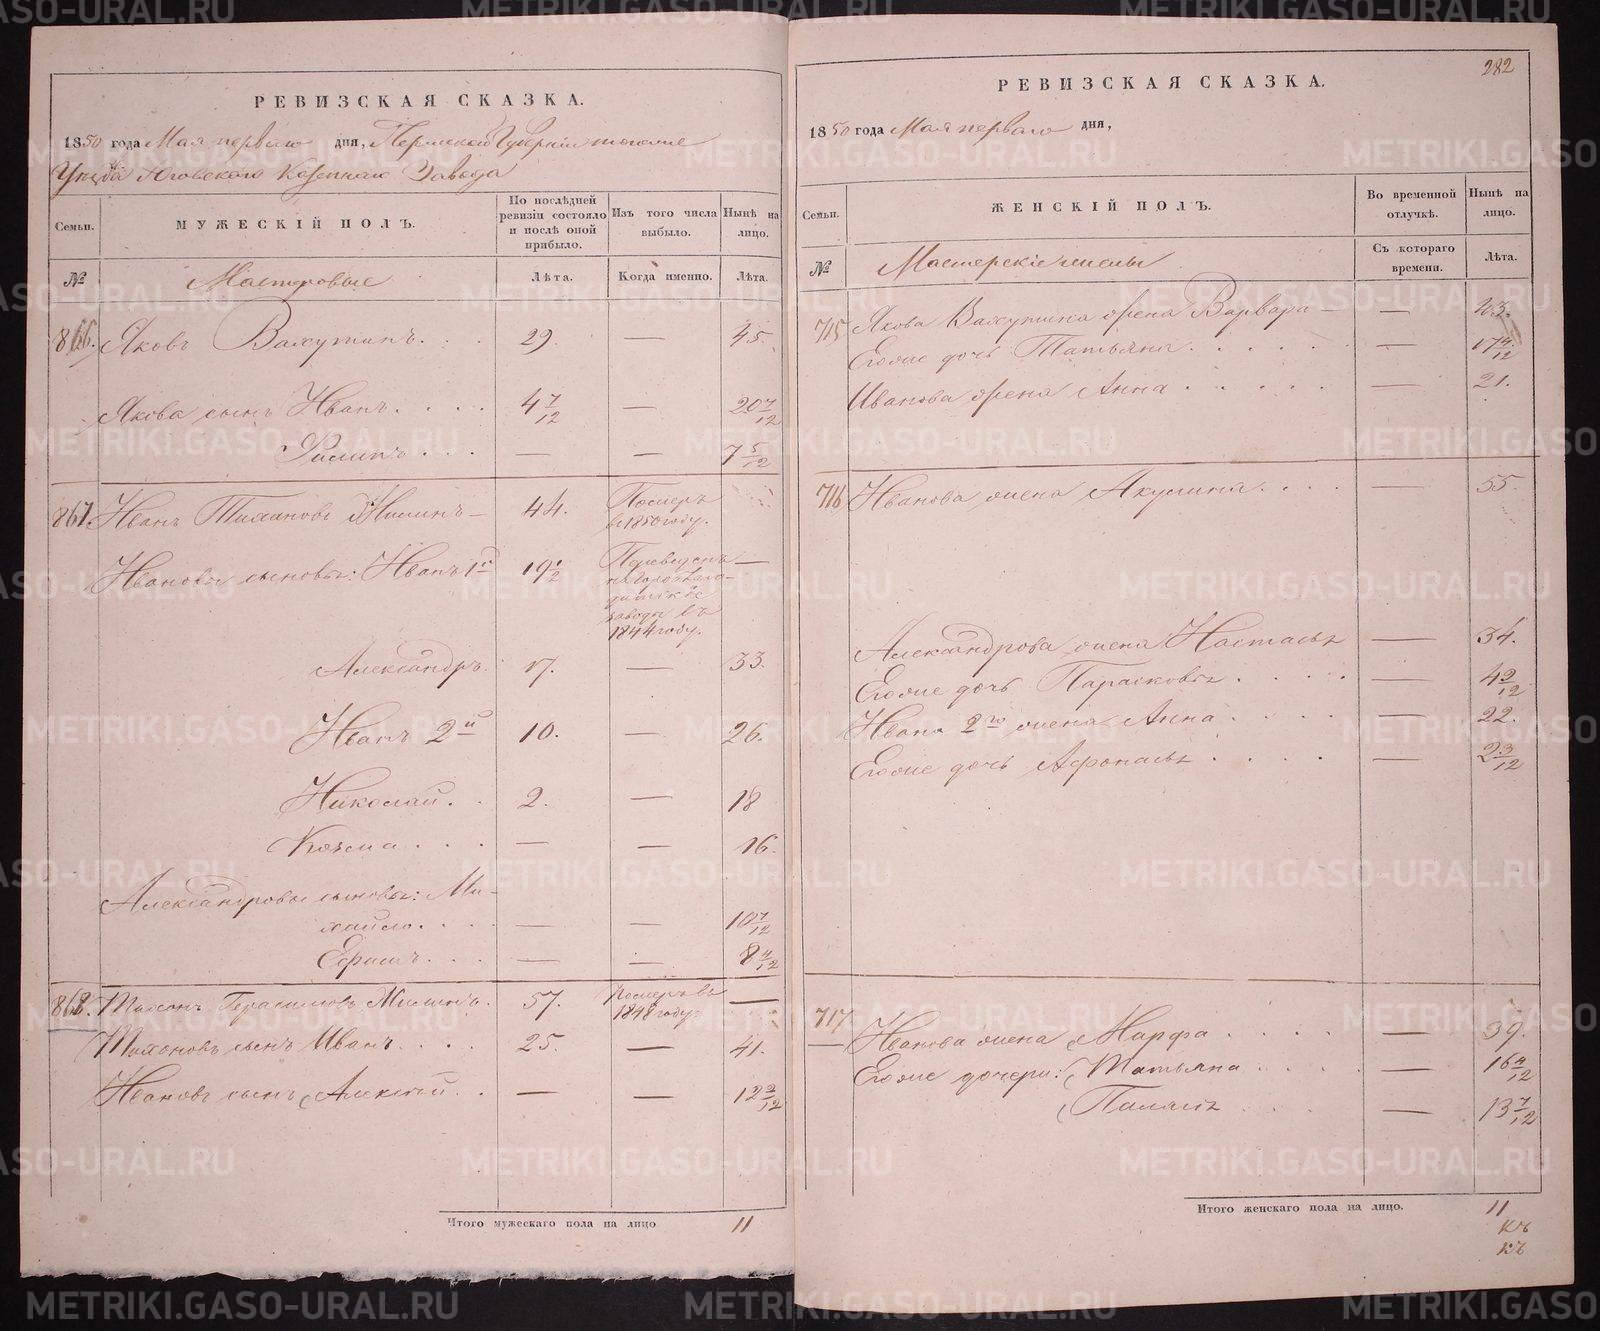 РЕВИЗСКАЯ СКАЗКА.
1850 года Мая перваго дня, Пермской Губернии тогоже
Уезда Юговского Казеннаго Завода
Семьи.
МУЖЕСКІЙ ПОЛЪ.
По послѣдней ревизіи состояло и послѣ оной прибыло.
Изъ того числа выбыло.
Нынѣ на лицо.
№
Мастеровые
Лѣта.
Когда именно.
Лѣта.
866. Яковъ 29. — 45.
Якова сынъ Иванъ. 4 7/12 — 20 7/12
Филипъ — — 7 5/12
867. Иванъ Тихановъ 44. Померъ
в 1850 году.
Ивановы сыновья: Иванъ 1й 19 1/2 Переведенъ —
заводы въ
1844 году.
Александръ 17. — 33.
Иванъ 2й 10. — 26.
Николай 2. — 18
Козьма — — 16.
Александровы сыновья: Ми-
хайло. — — 10 7/12
Ефимъ — — 8 4/12
868. Тихонъ Герасимовъ 57. Померъ въ —
1848 году.
Тихоновъ сынъ Иванъ 25. — 41.
Ивановъ сынъ Алексей — — 12 2/12
Итого мужескаго пола на лицо 11
282
РЕВИЗСКАЯ СКАЗКА.
1850 года Мая перваго дня,
Семьи.
ЖЕНСКІЙ ПОЛЪ.
Во временной отлучкѣ.
Нынѣ на лицо.
№
Мастерскіе жены
Съ котораго времени.
Лѣта.
715 Якова жена Варвара — — 43.
Егоже дочь Татьяна — 17 4/12
Иванова жена Анна — 21.
716 Иванова жена Акулина — 55.
Александрова жена Настасья — 34.
Егоже дочь Парасковья — 4 2/12
Ивана 2го жена Анна — 22.
Егоже дочь Афонасья — 2 3/12
717 Иванова жена Марфа — 39.
Егоже дочери: Татьяна — 16 4/12
Палагья — 13 7/12
Итого женскаго пола на лицо. 11
къ
къ
METRIKI.GASO-URAL.RU